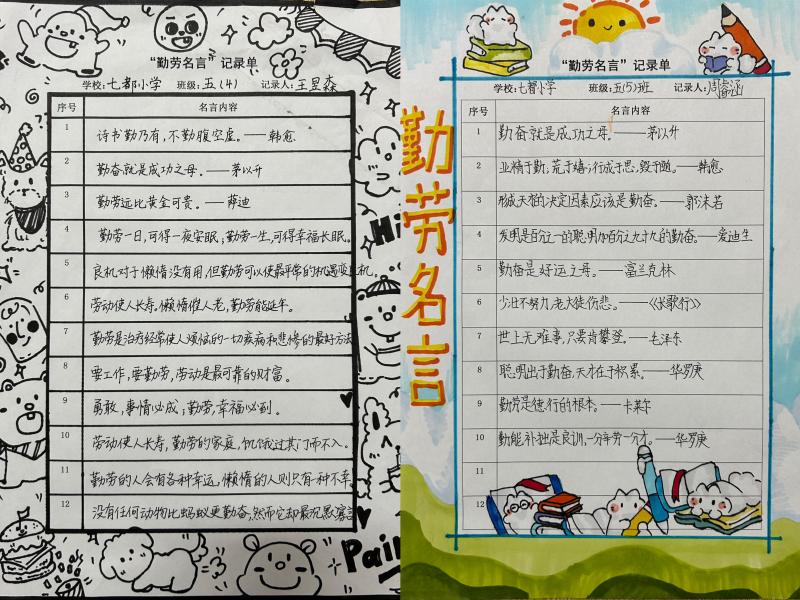 “勤劳名言”记录单
学校：七都小学 班级：五（4） 记录人：王昱森
序号 名言内容
1 诗书勤乃有，不勤腹空虚。——韩愈
2 勤奋就是成功之母。——茅以升
3 勤劳远比黄金可贵。——萨迪
4 勤劳一日，可得一夜安眠；勤劳一生，可得幸福长眠。
5 良机对于懒惰没有用，但勤劳可以使最平常的机遇变良机。
6 劳动使人长寿，懒惰催人老，勤劳能延年。
7 勤劳是治疗经常使人烦恼的一切疾病和悲惨的最好方法
8 要工作，要勤劳，劳动是最可靠的财富。
9 勇敢，事情必成；勤劳，幸福必到。
10 劳动使人长寿，勤劳的家庭，饥饿过其门而不入。
11 勤劳的人会有各种幸运，懒惰的人则只有一种不幸
12 没有任何动物比蚂蚁更勤奋，然而它却最沉默寡言
Hi
Pain
勤劳名言
“勤劳名言”记录单
学校：七都小学 班级：五（5）班 记录人：周睿涵
序号 名言内容
1 勤奋就是成功之母。——茅以升
2 业精于勤，荒于嬉；行成于思，毁于随。——韩愈
3 形成天才的决定因素应该是勤奋。——郭沫若
4 发明是百分之一的聪明加百分之九十九的勤奋。——爱迪生
5 勤奋是好运之母。——富兰克林
6 少壮不努力，老大徒伤悲。——《长歌行》
7 世上无难事，只要肯攀登。——毛泽东
8 聪明出于勤奋，天才在于积累。——华罗庚
9 勤劳是德行的根本。——卡莱尔
10 勤能补拙是良训，一分辛劳一分才。——华罗庚
11
12